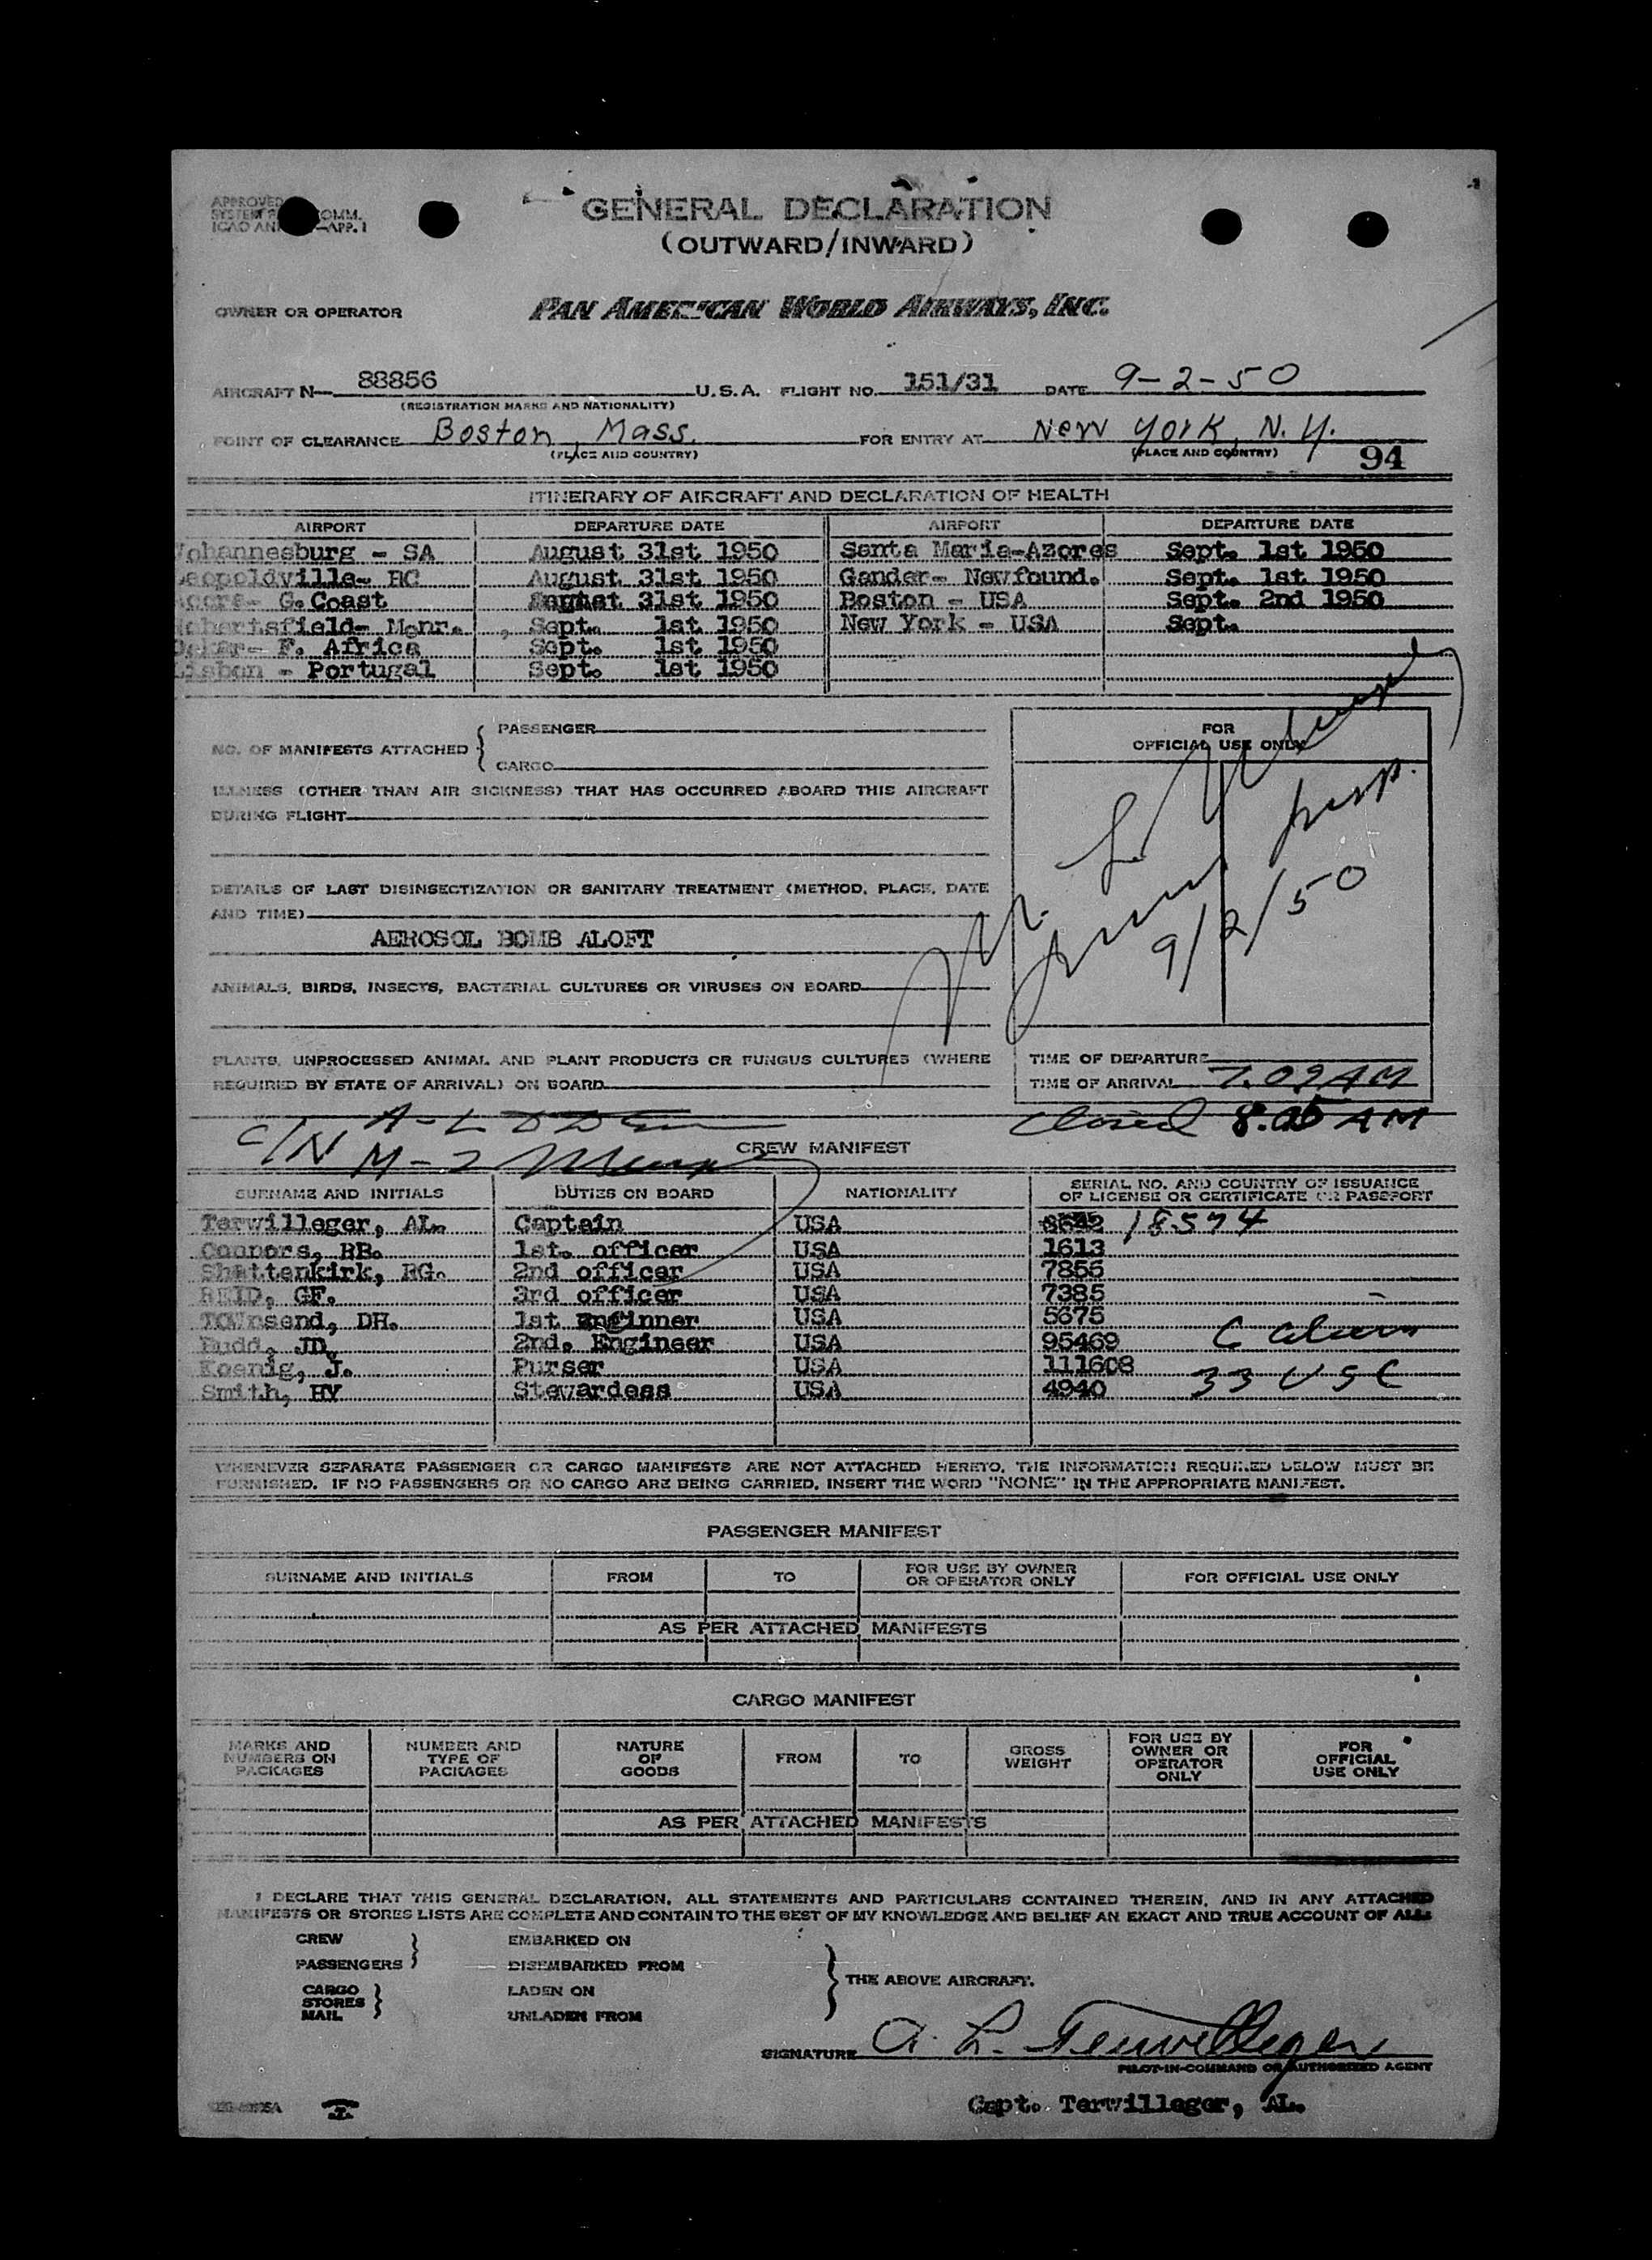 APPROVED
SYSTEM COMM.
ICAO AN —APP. 1
GENERAL DECLARATION
(OUTWARD/INWARD)
OWNER OR OPERATOR PAN AMERICAN WORLD AIRWAYS, INC.
AIRCRAFT N— 88856 U.S.A. FLIGHT NO. 151/31 DATE 9-2-50
(REGISTRATION MARKS AND NATIONALITY)
POINT OF CLEARANCE Boston, Mass. FOR ENTRY AT New York, N.Y.
(PLACE AND COUNTRY) (PLACE AND COUNTRY) 94
ITINERARY OF AIRCRAFT AND DECLARATION OF HEALTH
AIRPORT DEPARTURE DATE AIRPORT DEPARTURE DATE
Johannesburg - SA August 31st 1950 Santa Maria-Azores Sept. 1st 1950
Leopoldville- BC August 31st 1950 Gander- Newfound. Sept. 1st 1950
Accra- G.Coast August 31st 1950 Boston - USA Sept. 2nd 1950
Robertsfield- Monr. , Sept. 1st 1950 New York - USA Sept.
Dakar- F. Africa Sept. 1st 1950
Lisbon - Portugal Sept. 1st 1950
NO. OF MANIFESTS ATTACHED { PASSENGER
CARGO
FOR
OFFICIAL USE ONLY
ILLNESS (OTHER THAN AIR SICKNESS) THAT HAS OCCURRED ABOARD THIS AIRCRAFT
DURING FLIGHT
DETAILS OF LAST DISINSECTIZATION OR SANITARY TREATMENT (METHOD, PLACE, DATE
AND TIME)
AEROSOL BOMB ALOFT
9/2/50
ANIMALS, BIRDS, INSECTS, BACTERIAL CULTURES OR VIRUSES ON BOARD
PLANTS, UNPROCESSED ANIMAL AND PLANT PRODUCTS OR FUNGUS CULTURES (WHERE
REQUIRED BY STATE OF ARRIVAL) ON BOARD
TIME OF DEPARTURE
TIME OF ARRIVAL 7.09 AM
Closed 8.05 AM
C/N
CREW MANIFEST
SURNAME AND INITIALS DUTIES ON BOARD NATIONALITY SERIAL NO. AND COUNTRY OF ISSUANCE
OF LICENSE OR CERTIFICATE OR PASSPORT
Terwilleger, AL. Captain USA 18574
Connors, RB. 1st. officer USA 1613
Shattenkirk, RG. 2nd officer USA 7855
REID, GF. 3rd officer USA 7385
TOWnsend, DH. 1st Enginner USA 5675
Budd, JD. 2nd. Engineer USA 95469
Koenig, J. Purser USA 111608
Smith, HY Stewardess USA 4940 33 USC
WHENEVER SEPARATE PASSENGER OR CARGO MANIFESTS ARE NOT ATTACHED HERETO, THE INFORMATION REQUIRED BELOW MUST BE
FURNISHED. IF NO PASSENGERS OR NO CARGO ARE BEING CARRIED, INSERT THE WORD "NONE" IN THE APPROPRIATE MANIFEST.
PASSENGER MANIFEST
SURNAME AND INITIALS FROM TO FOR USE BY OWNER
OR OPERATOR ONLY FOR OFFICIAL USE ONLY
AS PER ATTACHED MANIFESTS
CARGO MANIFEST
MARKS AND
NUMBERS ON
PACKAGES
NUMBER AND
TYPE OF
PACKAGES
NATURE
OF
GOODS
FROM
TO
GROSS
WEIGHT
FOR USE BY
OWNER OR
OPERATOR
ONLY
FOR
OFFICIAL
USE ONLY
AS PER ATTACHED MANIFESTS
I DECLARE THAT THIS GENERAL DECLARATION, ALL STATEMENTS AND PARTICULARS CONTAINED THEREIN, AND IN ANY ATTACHED
MANIFESTS OR STORES LISTS ARE COMPLETE AND CONTAIN TO THE BEST OF MY KNOWLEDGE AND BELIEF AN EXACT AND TRUE ACCOUNT OF ALL:
CREW EMBARKED ON
PASSENGERS } DISEMBARKED FROM
CARGO
STORES
MAIL } LADEN ON
UNLADEN FROM
} THE ABOVE AIRCRAFT.
SIGNATURE A. L. Terwilleger
PILOT-IN-COMMAND OR AUTHORIZED AGENT
Capt. Terwilleger, AL.